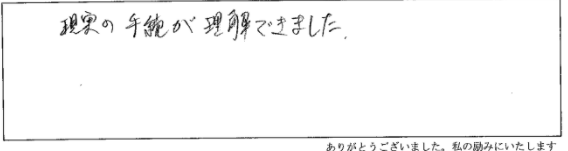 現実の手続が理解できました.
ありがとうございました。私の励みにいたします